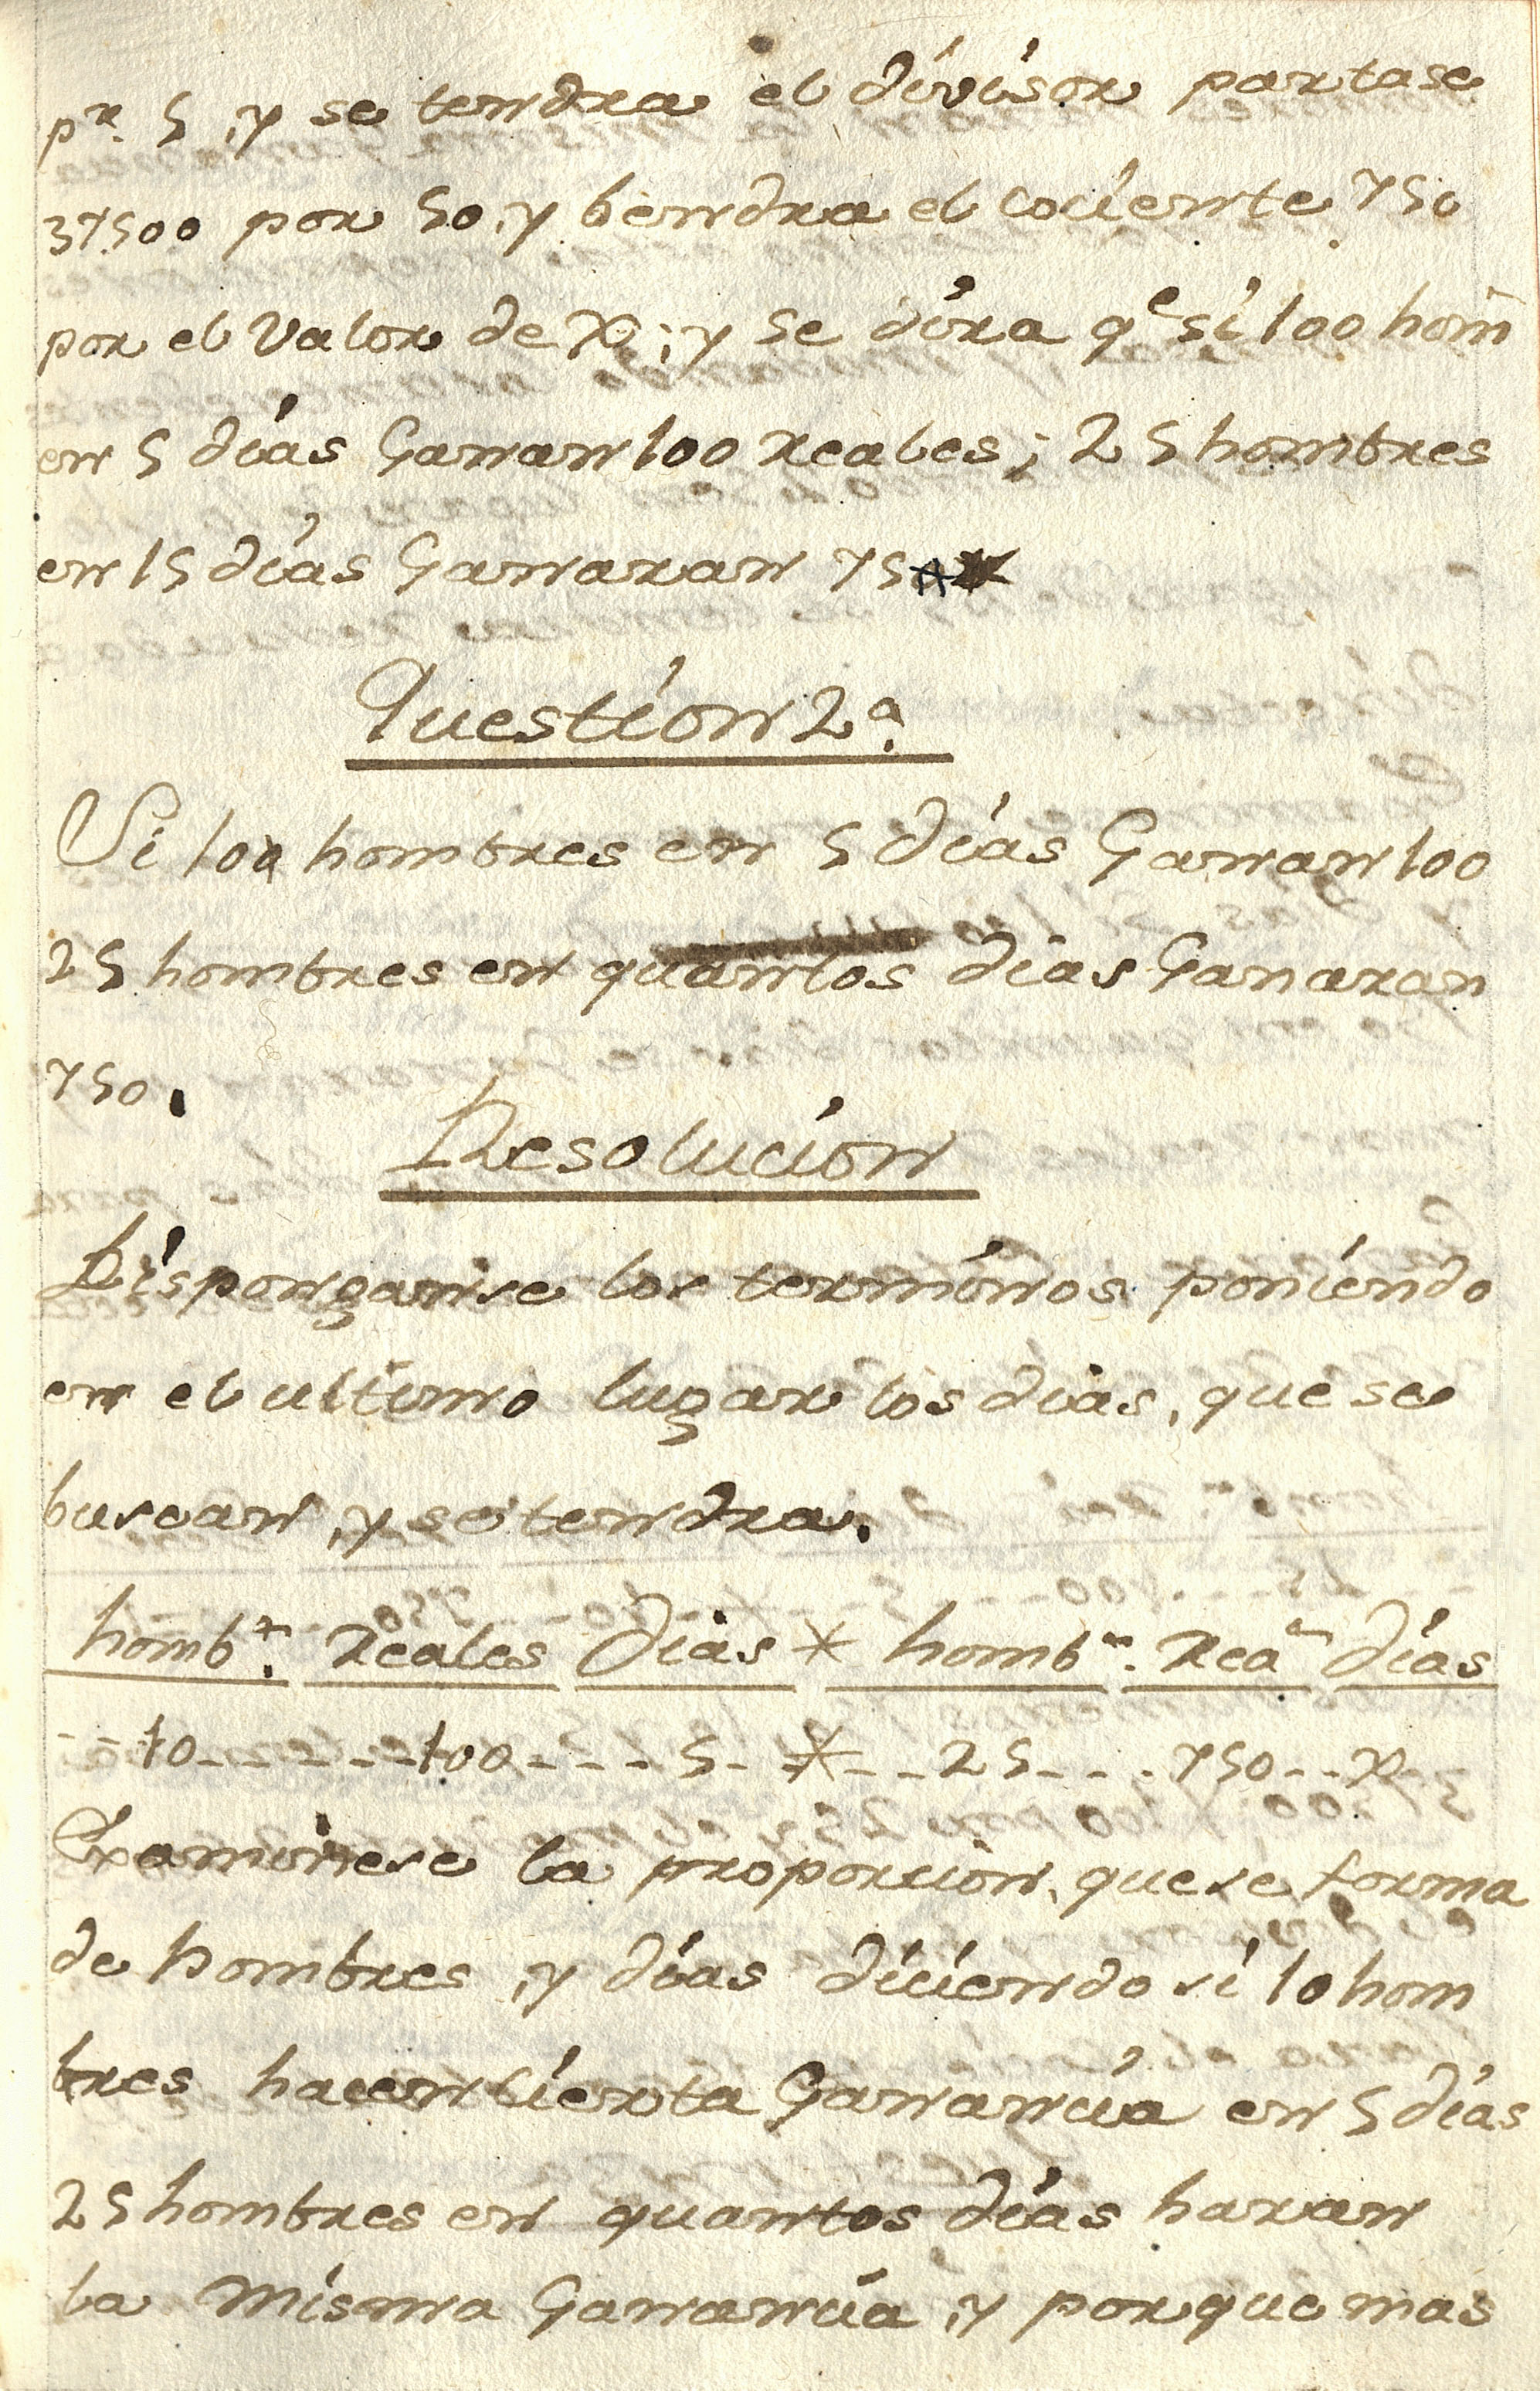 pr. 5, y se tendra el divisor partase
37500 por 50, y bendra el cociente 750
por el valor de x; y se dira qe si 100 hom
en 5 dias Ganan 100 reales; 25 hombres
en 15 dias Ganaran 750
Question 2a.
Si 100 hombres en 5 dias Ganan 100
25 hombres en quantos dias Ganaran
750.
Resolucion
Disponganse los terminos poniendo
en el ultimo lugar los dias, que se
buscan, y se tendra.
hombs. Reales Dias * hombs. Reas Dias
--10------100----5-*--25----750--x-
Examinese la proporcion, que se forma
de hombres, y dias diciendo si 10 hom
bres hacen cierta Ganancia en 5 dias
25 hombres en quantos dias haran
la misma Ganancia, y porque mas